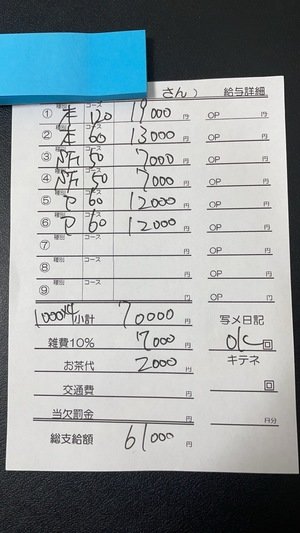 さん） 給与詳細
① 種別 本 コース 120 19000円 OP 円
② 種別 本 コース 60 13000円 OP 円
③ 種別 コース 50 7000円 OP 円
④ 種別 コース 50 7000円 OP 円
⑤ 種別 P コース 60 12000円 OP 円
⑥ 種別 P コース 60 12000円 OP 円
⑦ 種別 コース 円 OP 円
⑧ 種別 コース 円 OP 円
⑨ 種別 コース 円 OP 円
1000×4 小計 70000円 写メ日記
雑費10% 7000円 OK 回
お茶代 2000円 キテネ
交通費 円 回
当欠罰金 円 円分
総支給額 61000円